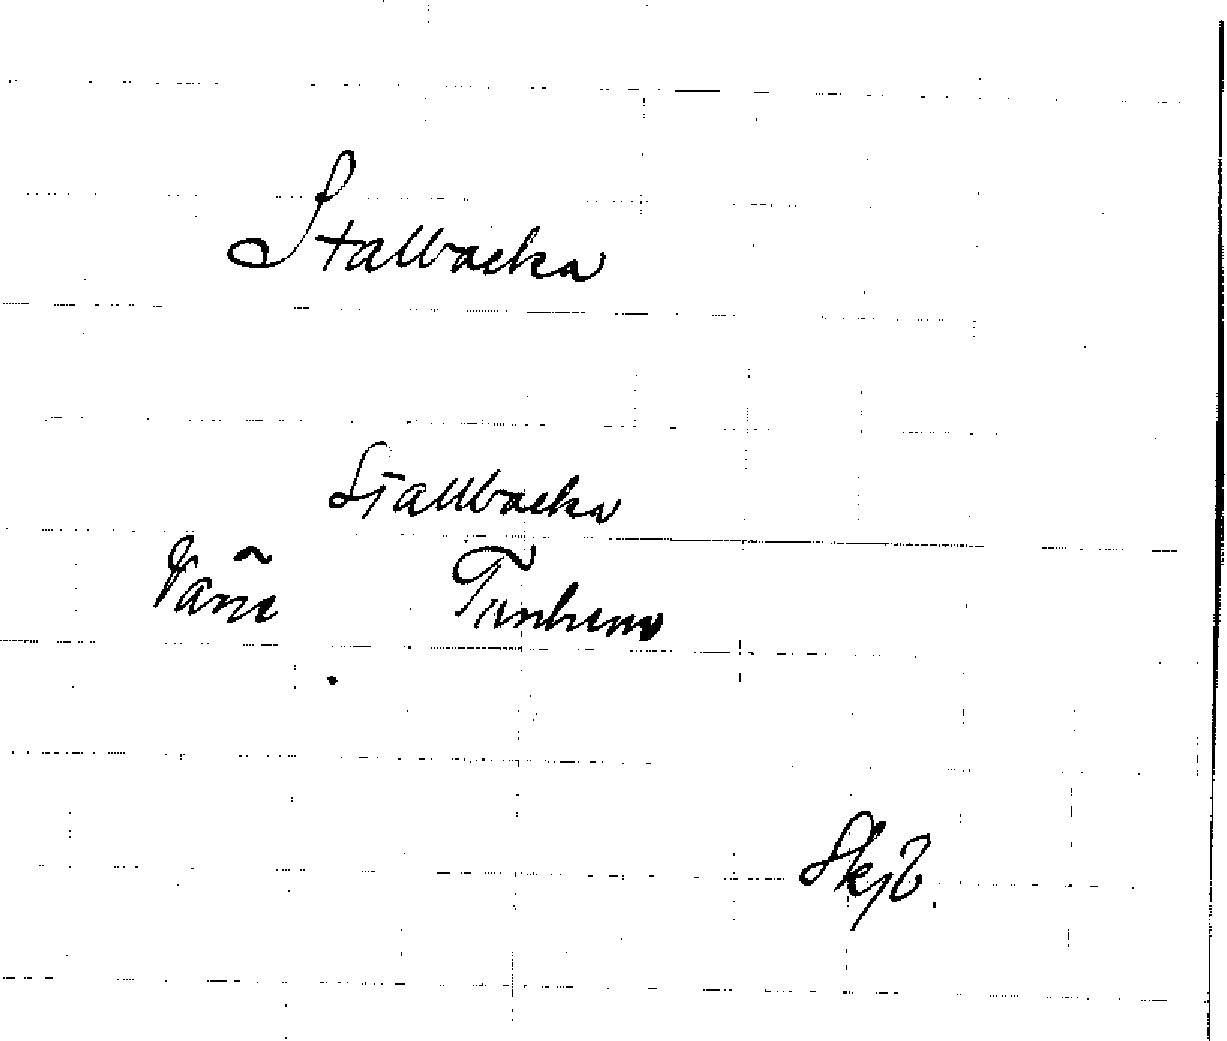 Stallbacka
Stallbacka
Väne Tunhem
Skjb.